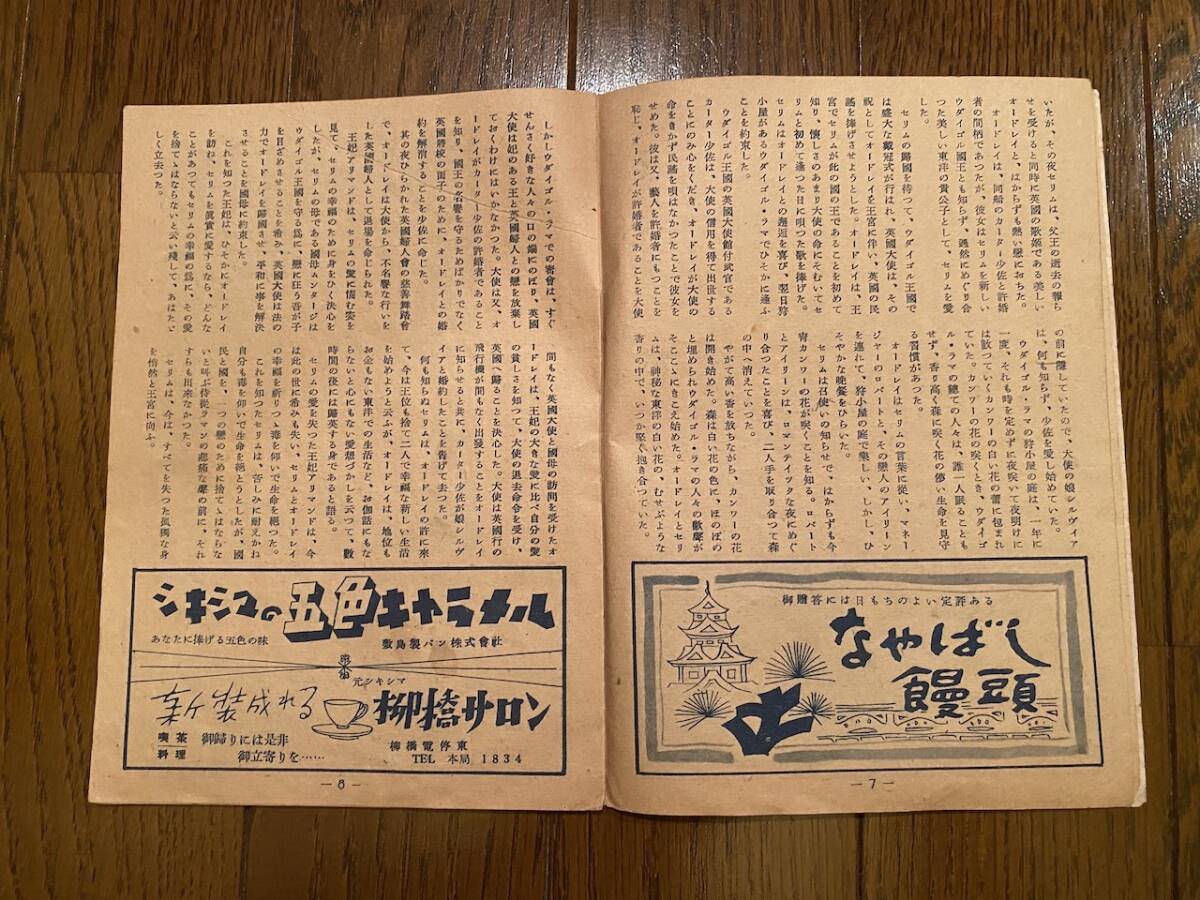 いたが、その夜セリムは、父王の逝去の報ら
せを受けると同時に英國の歌姬である美しい
オードレイと、はからずも熱い戀におちた。
オードレイは、同船のカーター少佐と許婚
者の間柄であつたが、彼女はセリムを新しい
ウダイゴル國王とも知らず、偶然にめぐり合
つた美しい東洋の貴公子として、セリムを愛
した。
セリムの歸國を待つて、ウダイゴル王國で
は盛大な戴冠式が行はれ、英國大使は、その
祝としてオードレイを王宮に伴い、英國の民
謠を捧げさせようとした。オードレイは、王
宮でセリムが此の國の王であることを初めて
知り、懷しさのあまり大使の命にそむいてセ
リムと初めて逢つた日に唄つた歌を捧げた。
セリムはオードレイとの邂逅を喜び、翌日狩
小屋があるウダイゴル・ラマでひそかに逢ふ
ことを約束した。
ウダイゴル王國の英國大使館付武官である
カーター少佐は、大使の信用を得て出世する
ことにのみ心をくだき、オードレイが大使の
命をきかず民謠を唄はなかつたことで彼女を
せめた。彼は又、藝人を許婚者にもつことを
恥じ、オードレイが許婚者であることを大使
の前に隱していたので、大使の娘シルヴィア
は、何も知らず、少佐を愛し始めていた。
ウダイゴル・ラマの狩小屋の庭は、一年に
一度、それも時を定めずに夜咲いて夜明けに
は散つていくカンワーの白い花の蕾に包まれ
ていた。カンワーの花の咲くとき、ウダイゴ
ル・ラマの總ての人々は、誰一人眠ることも
せず、香り高く森に咲く花の儚い生命を見守
る習慣があつた。
オードレイはセリムの言葉に從い、マネー
ジャーのロバートと、その戀人のアイリーン
を連れて、狩小屋の庭で樂しい、しかし、ひ
そやかな晩餐をひらいた。
セリムは召使いの知らせで、はからずも今
宵カンワーの花が咲くことを知る。ロバート
とアイリーンは、ロマンテイツクな夜にめぐ
り合つたことを喜び、二人手を取り合つて森
の中へ消えていつた。
やがて高い香を放ちながら、カンワーの花
は開き始めた。森は白い花の色に、ほのぼの
と埋められウダイゴル・ラマの人々の歡聲が
そこここにきこえ始めた。オードレイとセリ
ムは、神秘な東洋の白い花の、むせぶような
香りの中で、いつか堅く抱き合つていた。
御贈答には日もちのよい定評ある
なやばし
饅頭
—7—
しかしウダイゴル・ラマでの密會は、すぐ
せんさく好きな人々の口の端にのぼり、英國
大使は妃のある王と英國婦人との戀を放棄し
ておくわけにはいかなかつた。大使は又、オ
ードレイがカーター少佐の許婚者であること
を知り、國王の名譽を守るためばかりでなく
英國將校の面子のために、オードレイとの婚
約を解消することを少佐に命じた。
其の夜ひらかれた英國婦人會の慈善舞踏會
で、オードレイは大使から、不名譽な行いを
した英國婦人として退場を命じられた。
王妃アリマンドは、セリムの愛に惱む姿を
見て、セリムの幸福のために身をひく決心を
したが、セリムの母である國母ムンタージは
ウダイゴル王國を守る爲に、戀に狂う吾が子
を目ざめさせることを希み、英國大使は法の
力でオードレイを歸國させ、平和に事を解決
させることを國母に約束した。
これを知つた王妃は、ひそかにオードレイ
を訪ね、セリムを眞實に愛するなら、どんな
ことがあつてもセリムの幸福の爲に、その愛
を捨てゝはならないと云い殘して、あはたゞ
しく立去つた。
間もなく英國大使と國母の訪問を受けたオ
ードレイは、王妃の大きな愛に比べ自分の愛
の貧しさを知つて、大使の退去命令を受け、
英國へ歸ることを決心した。大使は英國行の
飛行機が間もなく出發することをオードレイ
に知らせると共に、カーター少佐が娘シルヴ
イアと婚約したことを告げて去つた。
何も知らぬセリムは、オードレイの許に來
て、今は王位も捨て二人で幸福な新しい生活
を始めようと云ふが、オードレイは、地位も
お金もない東洋での生活など、お伽話にもな
らないと心にもない愛想づかしを云つて、數
時間の後には歸英する身であると語る。
セリムの愛を失つた王妃アリマンドは、今
は此の世に希みも失い、セリムとオードレイ
の幸福を祈りつゝ毒を仰いで生命を絕つた。
これを知つたセリムは、苦しみに耐えかね
自分も毒を仰いで生命を絕とうとしたが、國
民と國を、一つの戀のために捨てゝはならな
いと叫ぶ侍從ラマンの悲痛な聲の前に、それ
すらも出來なかつた。
セリムは、今は、すべてを失つた孤獨な身
を悄然と王宮に向ふ。
シキシマの五色キャラメル
あなたに捧げる五色の味
敷島製パン株式會社
元シキシマ
柳橋サロン
喫茶
料理
御歸りには是非
御立寄りを……
柳橋電停東
TEL 本局 1834
—8—